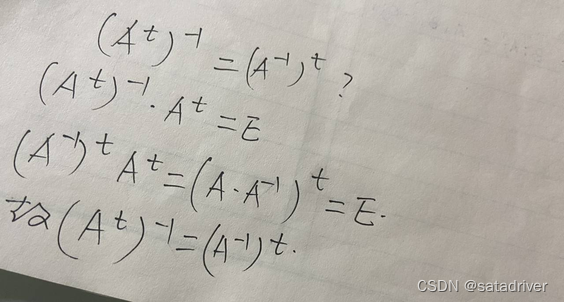 (Aᵗ)⁻¹ = (A⁻¹)ᵗ ?
(Aᵗ)⁻¹ · Aᵗ = E
(A⁻¹)ᵗ Aᵗ = (A · A⁻¹)ᵗ = E.
故 (Aᵗ)⁻¹ = (A⁻¹)ᵗ.
CSDN @satadriver